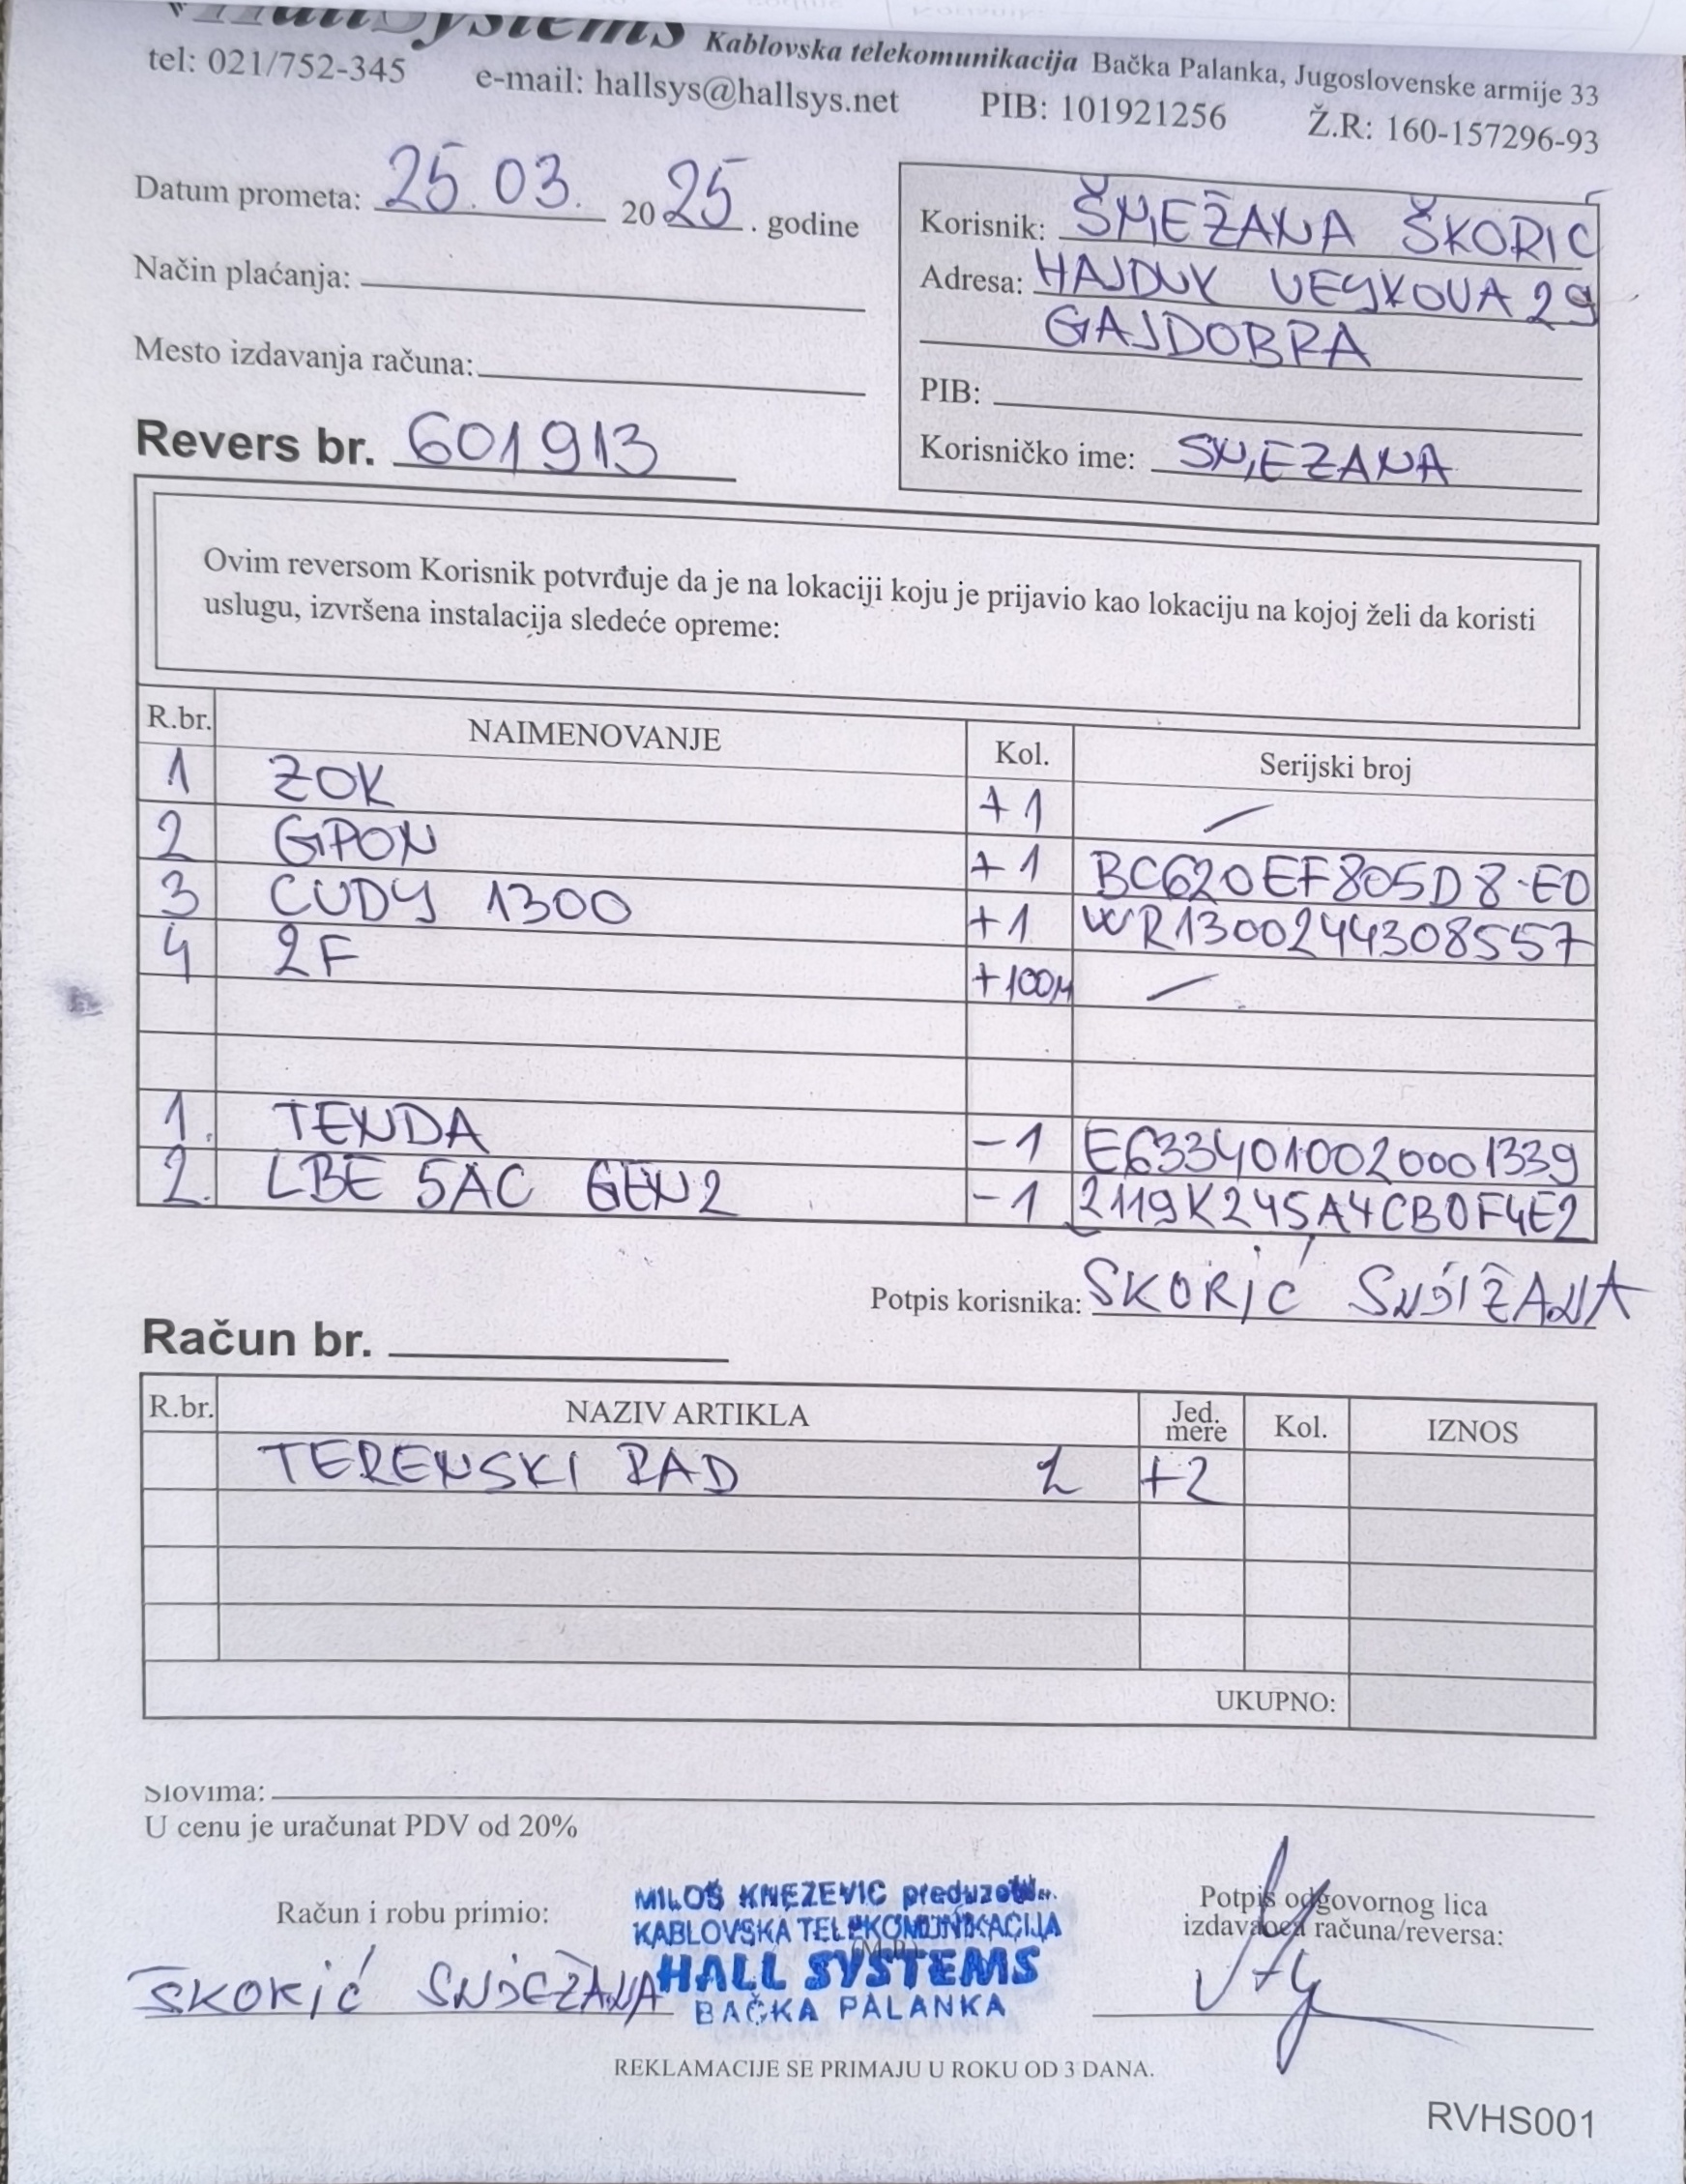 HallSystems Kablovska telekomunikacija Bačka Palanka, Jugoslovenske armije 33
tel: 021/752-345 e-mail: hallsys@hallsys.net PIB: 101921256 Ž.R: 160-157296-93
Datum prometa: 25.03. 2025. godine
Način plaćanja:
Mesto izdavanja računa:
Revers br. 601913
Korisnik: ŠNJEŽANA ŠKORIĆ
Adresa: HAJDUK VELJKOVA 29
GAJDOBRA
PIB:
Korisničko ime: SNJEZANA
Ovim reversom Korisnik potvrđuje da je na lokaciji koju je prijavio kao lokaciju na kojoj želi da koristi
uslugu, izvršena instalacija sledeće opreme:
R.br. NAIMENOVANJE Kol. Serijski broj
1 ZOK +1 –
2 GPON +1 BC620EF805D8-E0
3 CUDY 1300 +1 WR1300244308557
4 2F +100M –
1. TENDA -1 E6334010020001339
2. LBE 5AC GEN2 -1 2119K245A4CB0F4E2
Potpis korisnika: ŠKORIĆ SNJEŽANA
Račun br.
R.br. NAZIV ARTIKLA Jed. mere Kol. IZNOS
TERENSKI RAD 2 +2
UKUPNO:
Slovima:
U cenu je uračunat PDV od 20%
Račun i robu primio:
ŠKORIĆ SNJEŽANA
MILOŠ KNEŽEVIĆ
KABLOVSKA TELEKOMUNIKACIJA
(M.P.)
HALL SYSTEMS
BAČKA PALANKA
Potpis odgovornog lica
izdavaoca računa/reversa:
REKLAMACIJE SE PRIMAJU U ROKU OD 3 DANA.
RVHS001